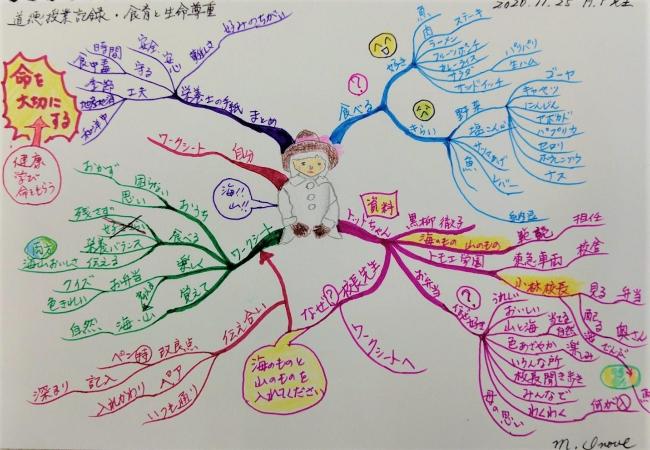 道徳授業記録・食育と生命尊重
2020.11.25
命を
大切に
する
健康
学び
命をもらう
時間
食中毒
季節
和洋中
安全
守る
安心
工夫
難しさ
好みのちがい
栄養士の手紙
まとめ
ワークシート
自分
海!!
山!!
食べる
?
好き
魚
肉
ステーキ
ラーメン
フルーツポンチ
カレーライス
サラダ
サンドイッチ
パリパリ
生ハム
きらい
野菜
塩こんぶ
魚
レバー
納豆
ゴーヤ
キャベツ
にんじん
アボカド
パプリカ
セロリ
ホウレンソウ
ナス
資料
トットちゃん
黒柳徹子
海のもの 山のもの
トモエ学園
東急車両
校舎
担任
小林校長
見る
弁当
配る
奥さん
お弁当
?
うれしい
おいしい
山と海
自然
楽しみ
色あざやか
いろんな所
校長聞き歩き
みんなで
わくわく
母の思い
何が入
なぜ?
校長先生
ワークシートへ
海のものと
山のものを
入れてください
ワークシート
おうち
おかず
困らない
思い
食べる
残さず
栄養バランス
両方
海山おいしさ
伝える
楽しく
クイズ
お弁当
色きれい
覚えて
自然
海・山
伝え合い
ペン
改良点
深まり
記入
ペア
入れかわり
いつも通り
M. Inoue